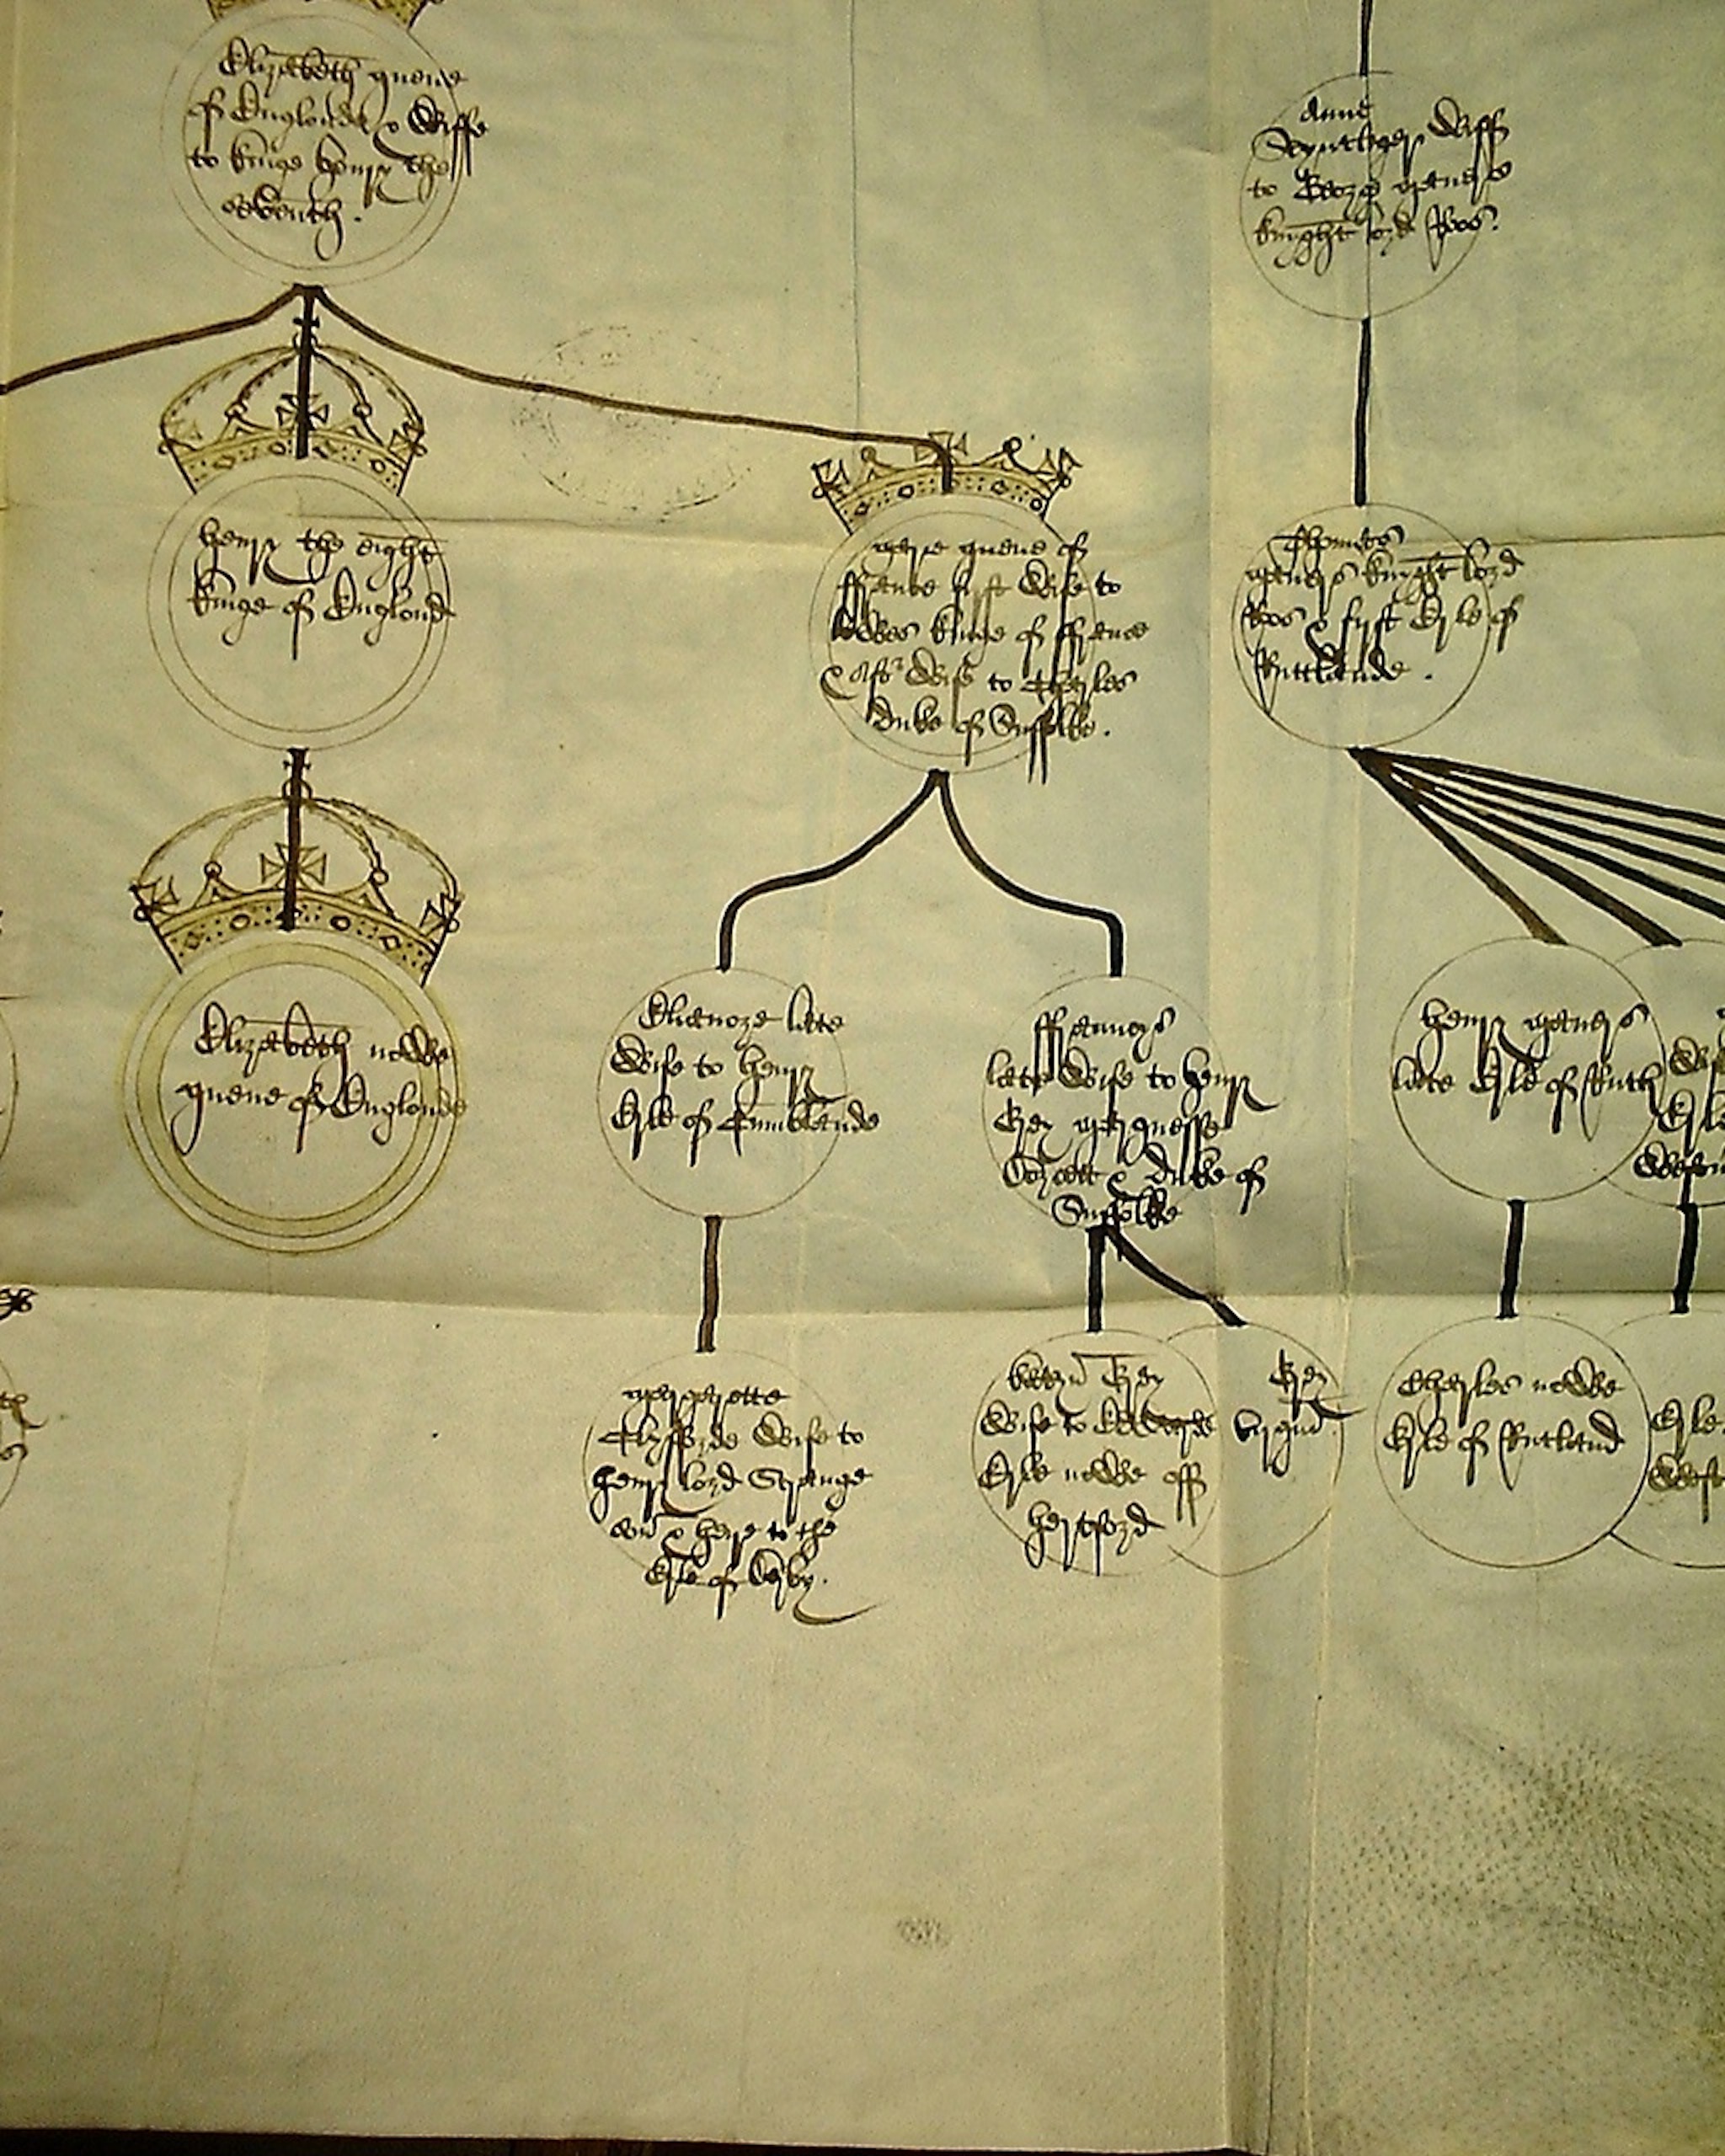 Elizabeth quene
of Englonde & Wiffe
to kinge henry the
seventh.
Anne
Seyntleger Wiff
to George maners
knyght lord Roos.
henry the eight
kinge of Englond
marye quene of
ffrance fyrst Wife to
lewes kinge of ffrance
& aftr Wife to Charles
duke of Suffolke.
Thomas
maners knyght lord
Roos & fyrst Erle of
Ruttlande.
Elizabeth nowe
quene of Englonde
Elianore late
Wife to henry
Erle of Cumblande
ffrauncys
late Wife to henry
Grey marquesse
Dorcett & duke of
Suffolke
henry maners
late Erle of Rutl
Erle
margarette
Clyfforde Wife to
henry lord Strange
son & heire to the
Erle of Derby.
katern Grey
Wife to Edwarde
Erle nowe off
hertford
Grey
virgin.
Charles nowe
Erle of Rutland
Erle
West